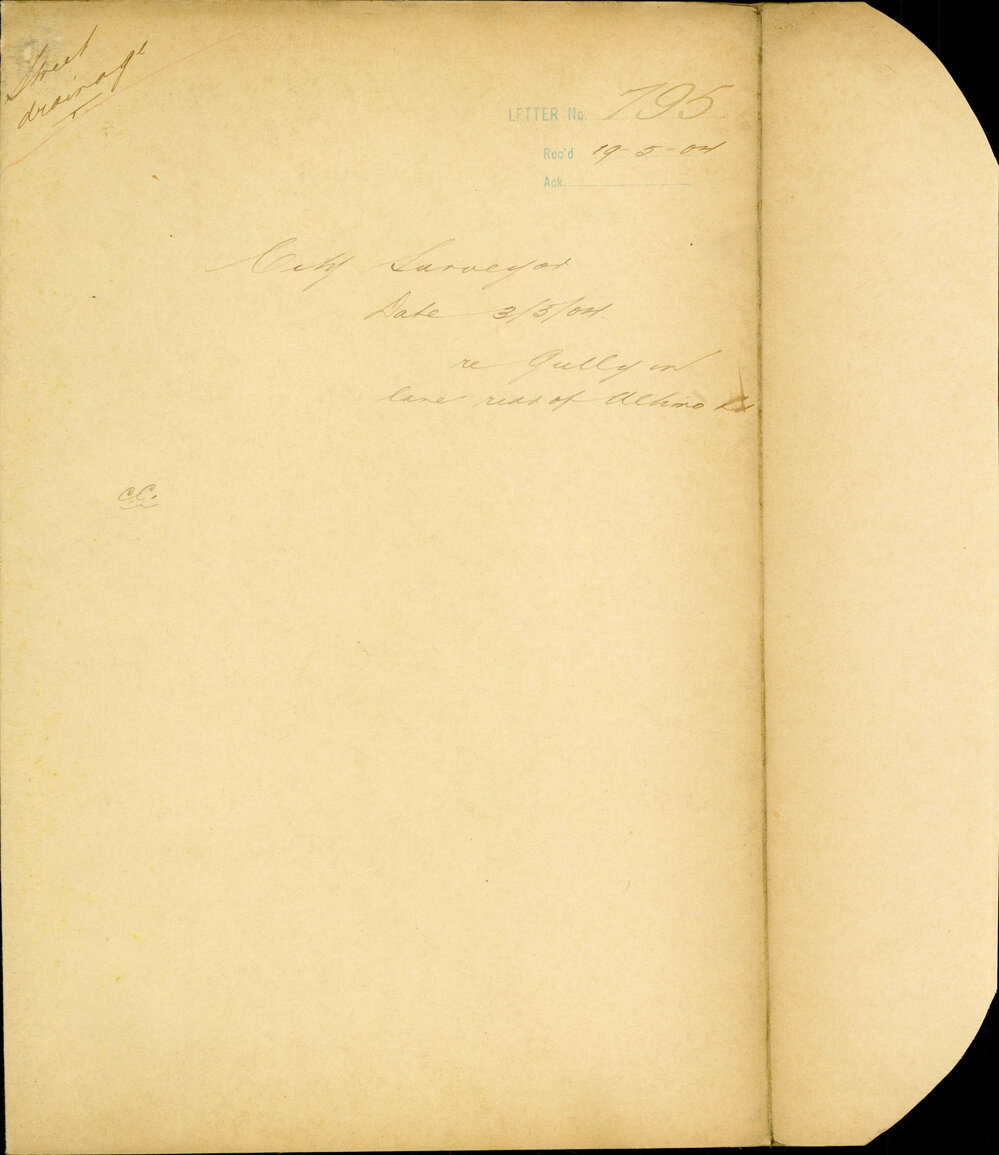 Street
drainage
LETTER No. 795
Rec'd 19-5-04
Ack.
City Surveyor
Date 3/5/04.
re Gully in
lane rear of Ultimo Rd
C.C.